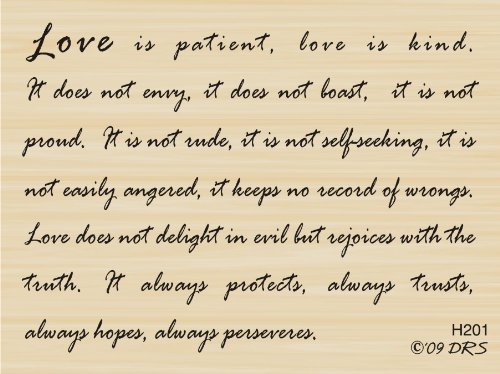 Love is patient, love is kind.
It does not envy, it does not boast, it is not
proud. It is not rude, it is not self-seeking, it is
not easily angered, it keeps no record of wrongs.
Love does not delight in evil but rejoices with the
truth. It always protects, always trusts,
always hopes, always perseveres.
H201
©'09 DRS